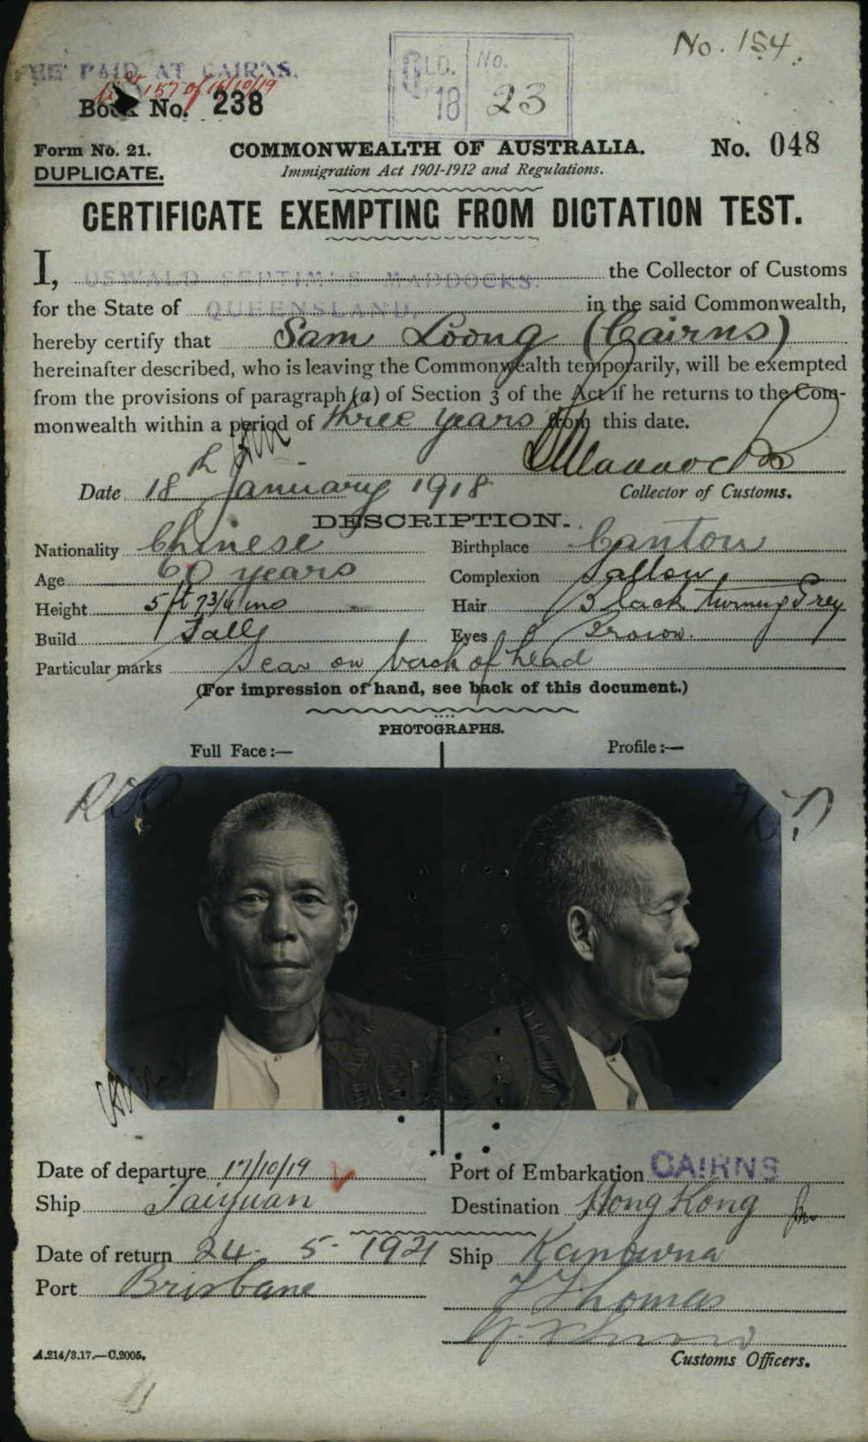 No. 154.
FEE PAID AT CAIRNS.
157 of 16/10/19
QLD. No.
18 23
Book No. 238
Form No. 21.
COMMONWEALTH OF AUSTRALIA.
No. 048
DUPLICATE.
Immigration Act 1901-1912 and Regulations.
CERTIFICATE EXEMPTING FROM DICTATION TEST.
I, OSWALD SEPTIMUS MADDOCKS. the Collector of Customs
for the State of QUEENSLAND. in the said Commonwealth,
hereby certify that Sam Loong (Cairns)
hereinafter described, who is leaving the Commonwealth temporarily, will be exempted
from the provisions of paragraph (a) of Section 3 of the Act if he returns to the Com-
monwealth within a period of three years from this date.
Maddocks
Date 18th January 1918 Collector of Customs.
DESCRIPTION.
Nationality Chinese Birthplace Canton
Age 60 years Complexion Sallow
Height 5 ft 7 3/4 ins Hair Black turning Grey
Build Tall Eyes Brown.
Particular marks Scar on back of head
(For impression of hand, see back of this document.)
PHOTOGRAPHS.
Full Face:— Profile:—
Date of departure 17/10/19 Port of Embarkation CAIRNS
Ship Taiyuan Destination Hong Kong
Date of return 24 - 5 - 1921 Ship Kanowna
Port Brisbane
Thomas
A.214/3.17.—C.2005. Customs Officers.